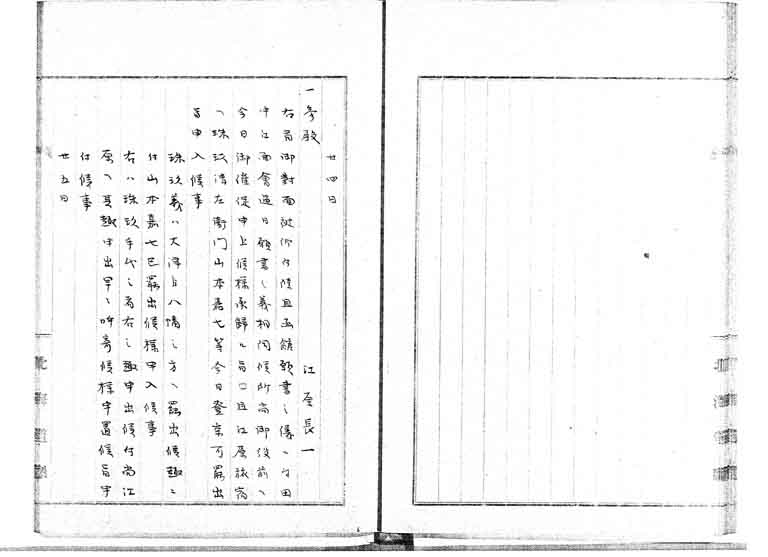 廿四日
一参殿 江原長一
右者御対面被仰付候且函館願書之儀ハ
中江面会過日願書之義相伺候所尚御役前ヘ
今日御催促申上候様承帰ル旨
珠玖清左衛門山本嘉七等今日登京可罷出
旨申入候事
珠玖義ハ大澤ゟ八幡之方ヘ罷出候趣ニ
付山本嘉七已罷出候様申入候事
右ハ珠玖手代之者右之趣申出候付尚江
原ヘ其趣申出早々呼寄候様申置候旨申
付候事
廿五日